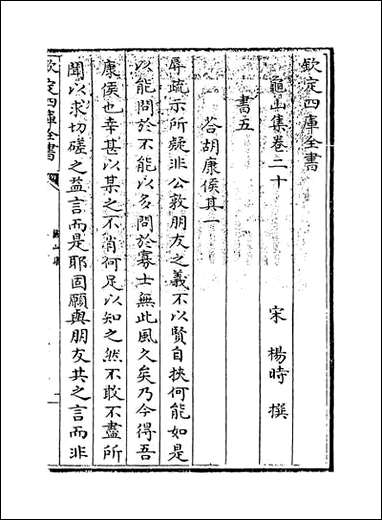 欽定四庫全書
龜山集卷二十
宋 楊時 撰
書五
答胡康侯其一
辱疏示所疑非公敦朋友之義不以賢自挾何能如是
以能問於不能以多問於寡士無此風久矣乃今得吾
康侯也幸甚以某之不肖何足以知之然不敢不盡所
聞以求切磋之益言而是耶固願與朋友共之言而非
欽定四庫全書
龜山集